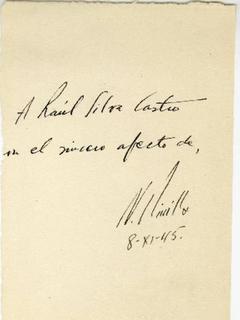 A Raúl Silva Castro
con el sincero afecto de,
8-XI-45.